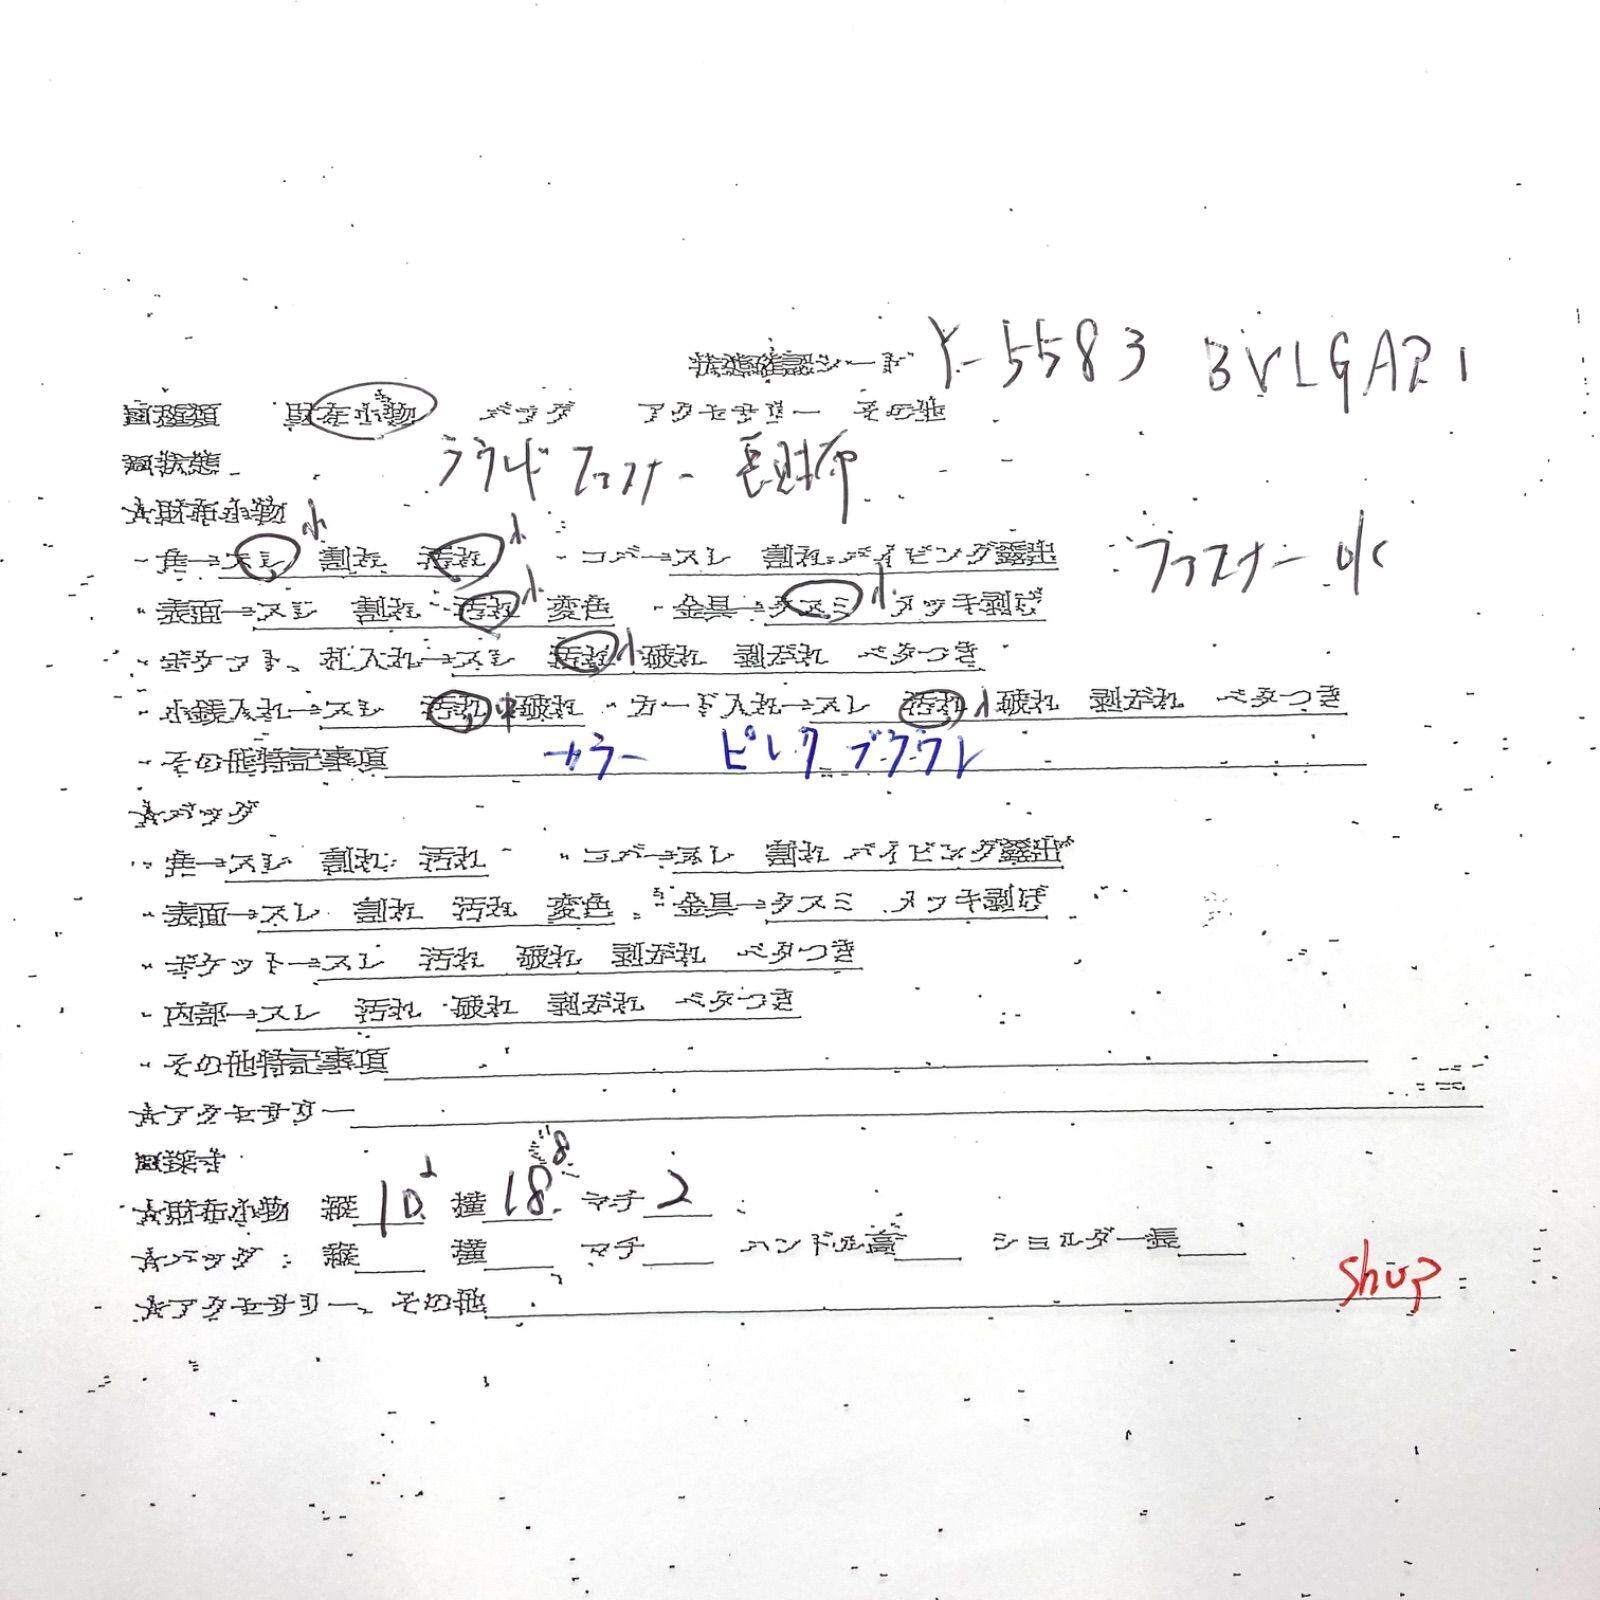 状態確認シート Y-5583 BVLGARI
種類 財布小物 バッグ アクセサリー その他
状態 ラウンドファスナー 長財布
☆財布小物
・角→スレ小 割れ 汚れ小 ・コバ→スレ 割れ パイピング露出 ファスナー ok
・表面→スレ 割れ 汚れ小 変色 ・金具→クスミ小 メッキ剥げ
・ポケット、札入れ→スレ 汚れ小 破れ 剥がれ ベタつき
・小銭入れ→スレ 汚れ中 破れ ・カード入れ→スレ 汚れ小 破れ 剥がれ ベタつき
・その他特記事項 カラー ピンク ブラウン
☆バッグ
・角→スレ 割れ 汚れ ・コバ→スレ 割れ パイピング露出
・表面→スレ 割れ 汚れ 変色 ・金具→クスミ メッキ剥げ
・ポケット→スレ 汚れ 破れ 剥がれ ベタつき
・内部→スレ 汚れ 破れ 剥がれ ベタつき
・その他特記事項
☆アクセサリー
採寸
☆財布小物 縦 10. 横 18.8 マチ 2
☆バッグ 縦 横 マチ ハンドル高 ショルダー長
☆アクセサリー、その他 shop